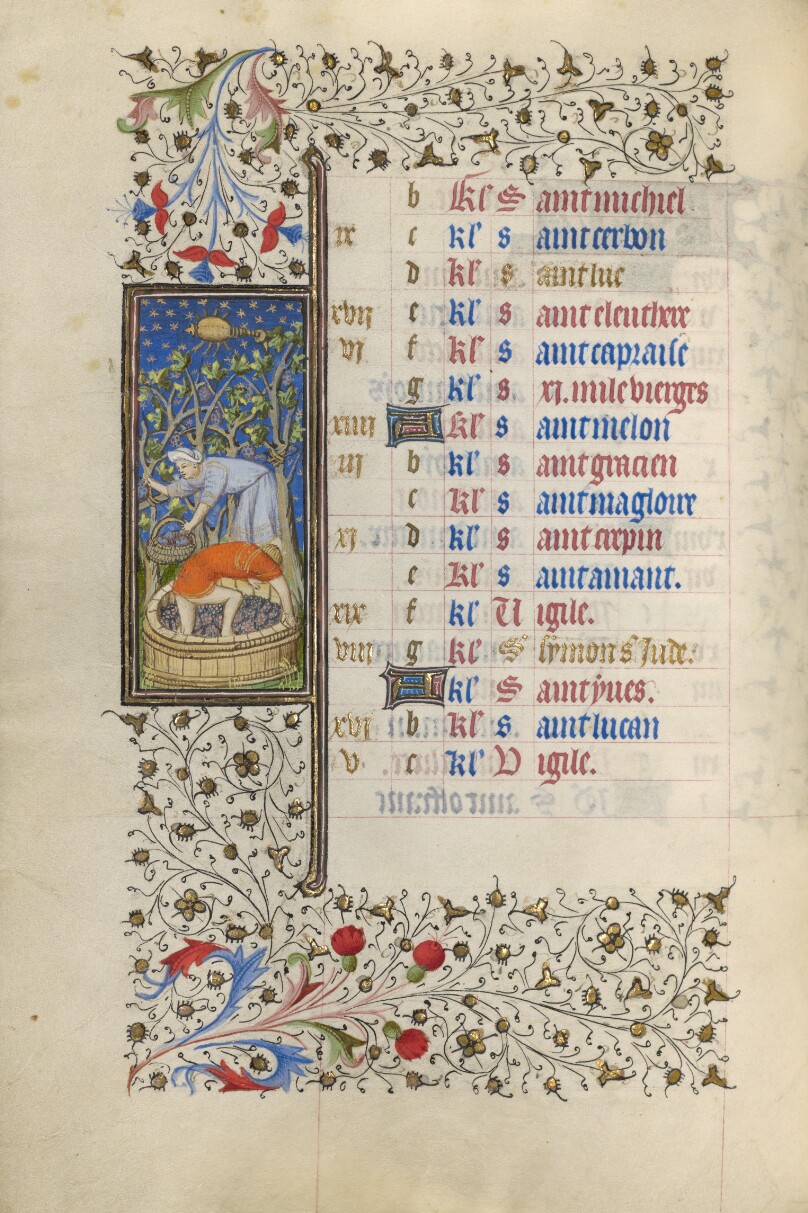 b kl' S aint michiel
ix c kl' s aint cerbon
d kl' s aint luc
xvii e kl' s aint eleuthere
vi f kl' s aint capraise
g kl' s. xi. mile vierges
xiiii A kl' s aint melon
iii b kl' s aint gracien
c kl' s aint magloire
xi d kl' s aint crepin
e kl' s aint amant.
xix f kl' U igile.
viii g kl' S' symon s' Jude.
A kl' S aint yues.
xvi b kl' s aint lucan
v c kl' V igile.